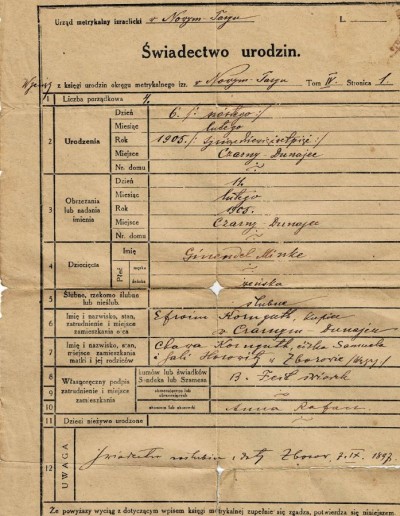 Urząd metrykalny izraelicki w Nowym-Targu L.
Świadectwo urodzin.
z księgi urodzin okręgu metrykalnego izr. w Nowym-Targu Tom IV. Stronica 1.
1 Liczba porządkowa 4.
2 Urodzenia
Dzień 6.
Miesiąc lutego
Rok 1905.
Miejsce Czarny-Dunajec
Nr. domu
3 Obrzezania lub nadania imienia
Dzień 11.
Miesiąc lutego
Rok 1905.
Miejsce Czarny-Dunajec
Nr. domu
4 Dziecięcia
Imię Minke
Płeć męska
żeńska żeńska
5 Ślubne, rzekomo ślubne lub nieślub. ślubne
6 Imię i nazwisko, stan, zatrudnienie i miejsce zamieszkania ojca
Efroim Korngut, kupiec
w Czarnym Dunajcu
7 Imię i nazwisko, stan, miejsce zamieszkania matki i jej rodziców
Chava Korngut, córka Samuela
i Sali Horovitz w Zborovie
8 9 10 Własnoręczny podpis zatrudnienie i miejsce zamieszkania
kumów lub świadków Sandeka lub Szamesa
akuszera lub akuszerki Anna
11 Dzieci nieżywo urodzone
12 UWAGA
Zborov 7/IX. 1897.
Że powyższy wyciąg z dotyczącym wpisem księgi metrykalnej zupełnie się zgadza, potwierdza się niniejszem.